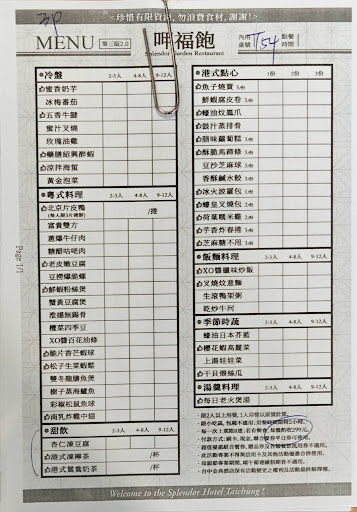 <珍惜有限資源, 勿浪費食材, 謝謝!>
MENU 第三版2.0
呷福飽
Splendor Garden Restaurant
內用桌號 T54
點餐時間
冷盤 2-3人 4-8人 9-12人
蜜香奶芋
冰梅番茄
五香牛腱
蜜汁叉燒
玫瑰油雞
藥膳紹興醉蝦
涼拌海蜇
黃金泡菜
粵式料理 2-3人 4-8人 9-12人
北京片皮鴨 /捲
富貴雙方
蔥爆牛仔肉
糖醋咕咾肉
老皮嫩豆腐
豆撈爆脆螺
鮮蝦粉絲煲
蟹黃豆腐煲
淮揚無錫骨
欖菜四季豆
XO醬百花油條
脆片香芒蝦球
松子生菜蝦鬆
雙冬龍鱺魚煲
樹子蒸海鱺魚
彩椒松鼠魚球
南乳炸雞中翅
甜飲 2-3人 4-8人 9-12人
杏仁凍豆腐
港式凍檸茶 /杯
港式鴛鴦奶茶 /杯
港式點心 1份 2份 3份
魚子燒賣 3.份
鮮蝦腐皮卷 3.份
蠔油炆鳳爪
豉汁蒸排骨
腊味蘿蔔糕 3.份
酥脆馬蹄條 3.份
豆沙芝麻球 3.份
香酥鹹水餃 3.份
冰火菠蘿包 3.份
蠔皇叉燒包 3.份
荷葉糯米雞 2.份
芋香炸春捲 3.份
芝麻糖不甩 3.份
飯麵料理 2-3人 4-8人 9-12人
XO醬臘味炒飯
叉燒炆意麵
生滾鴨架粥
乾炒牛河
季節時蔬 2-3人 4-8人 9-12人
蠔油日本芥藍
櫻花蝦高麗菜
上湯娃娃菜
干貝煨絲瓜
湯羹料理 2-3人 4-8人 9-12人
每日老火煲湯
Page 1/1
Welcome to the Splendor Hotel Taichung !